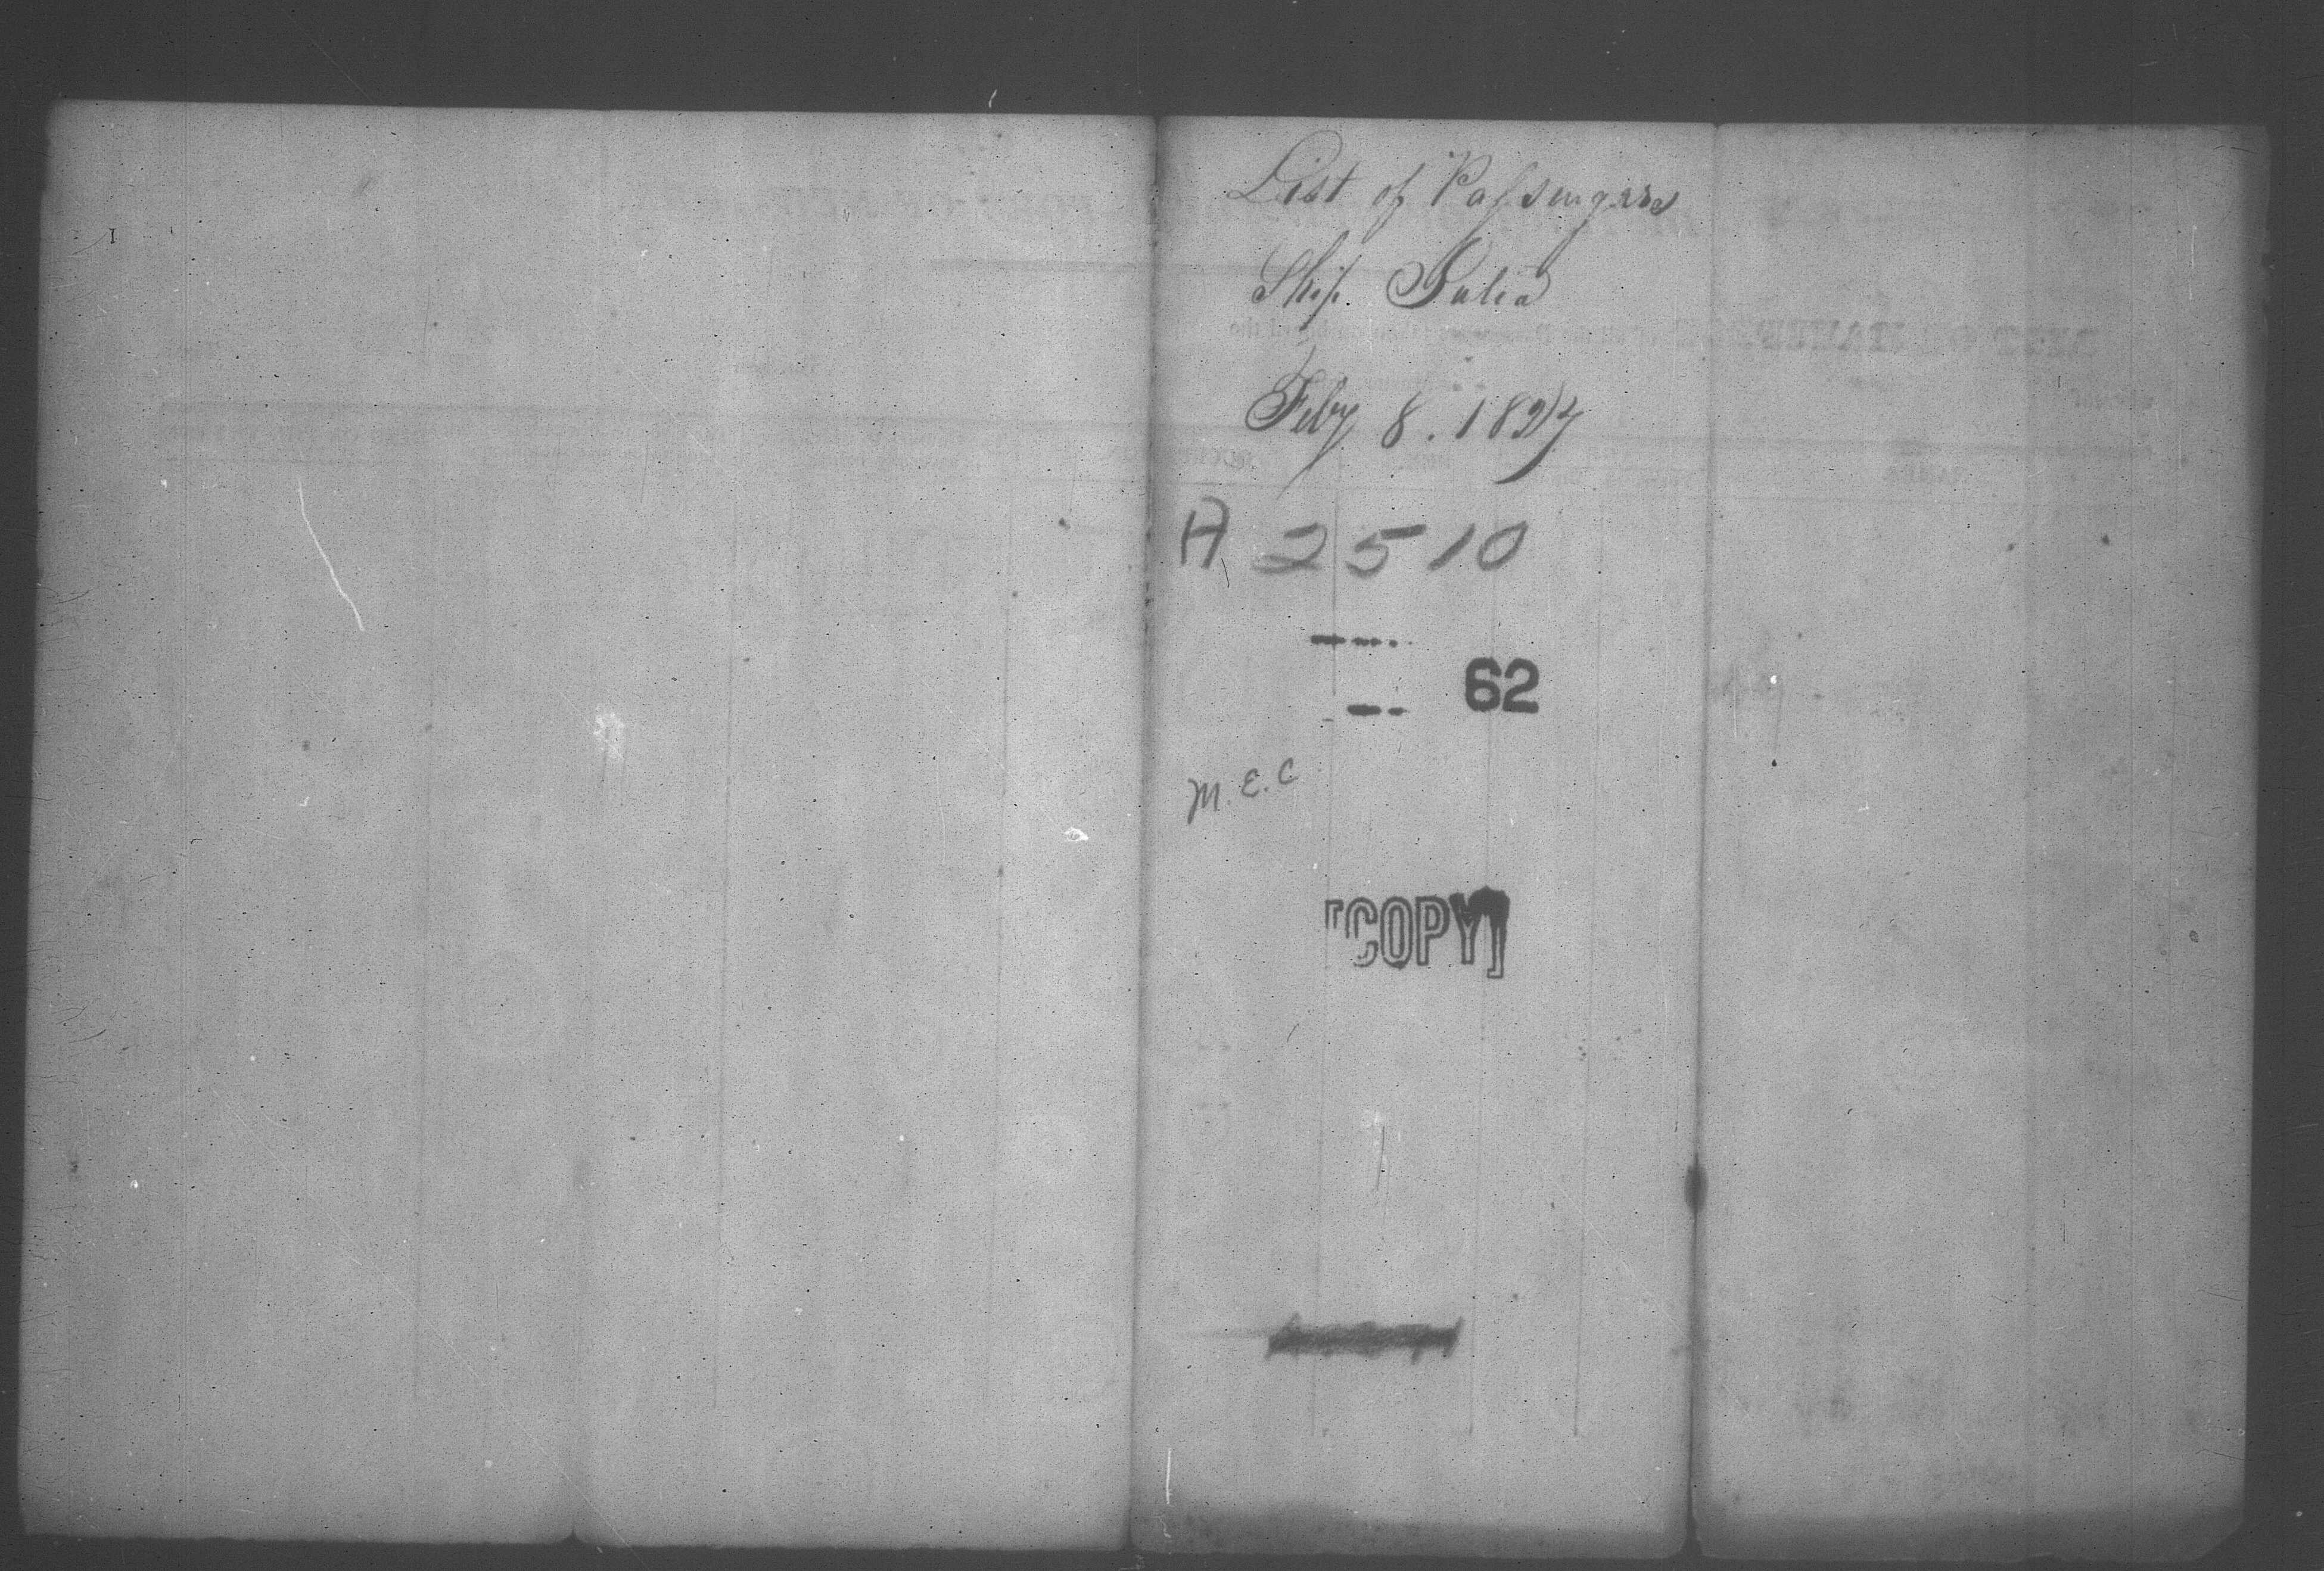 List of Passengers
Ship Julia
Feby 8. 1827
A 2510
62
M. E. C
[COPY]